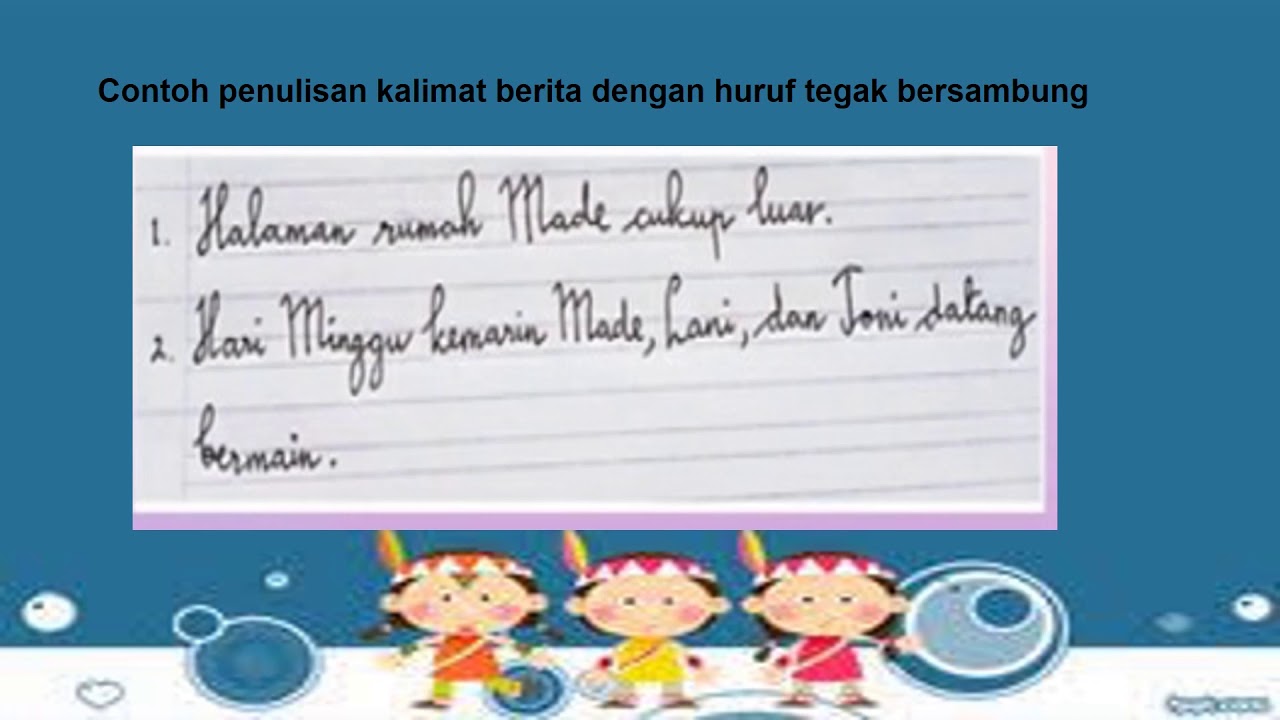 Contoh penulisan kalimat berita dengan huruf tegak bersambung
1. Halaman rumah Made cukup luar.
2. Hari Minggu kemarin Made, Lani, dan Toni datang
bermain.